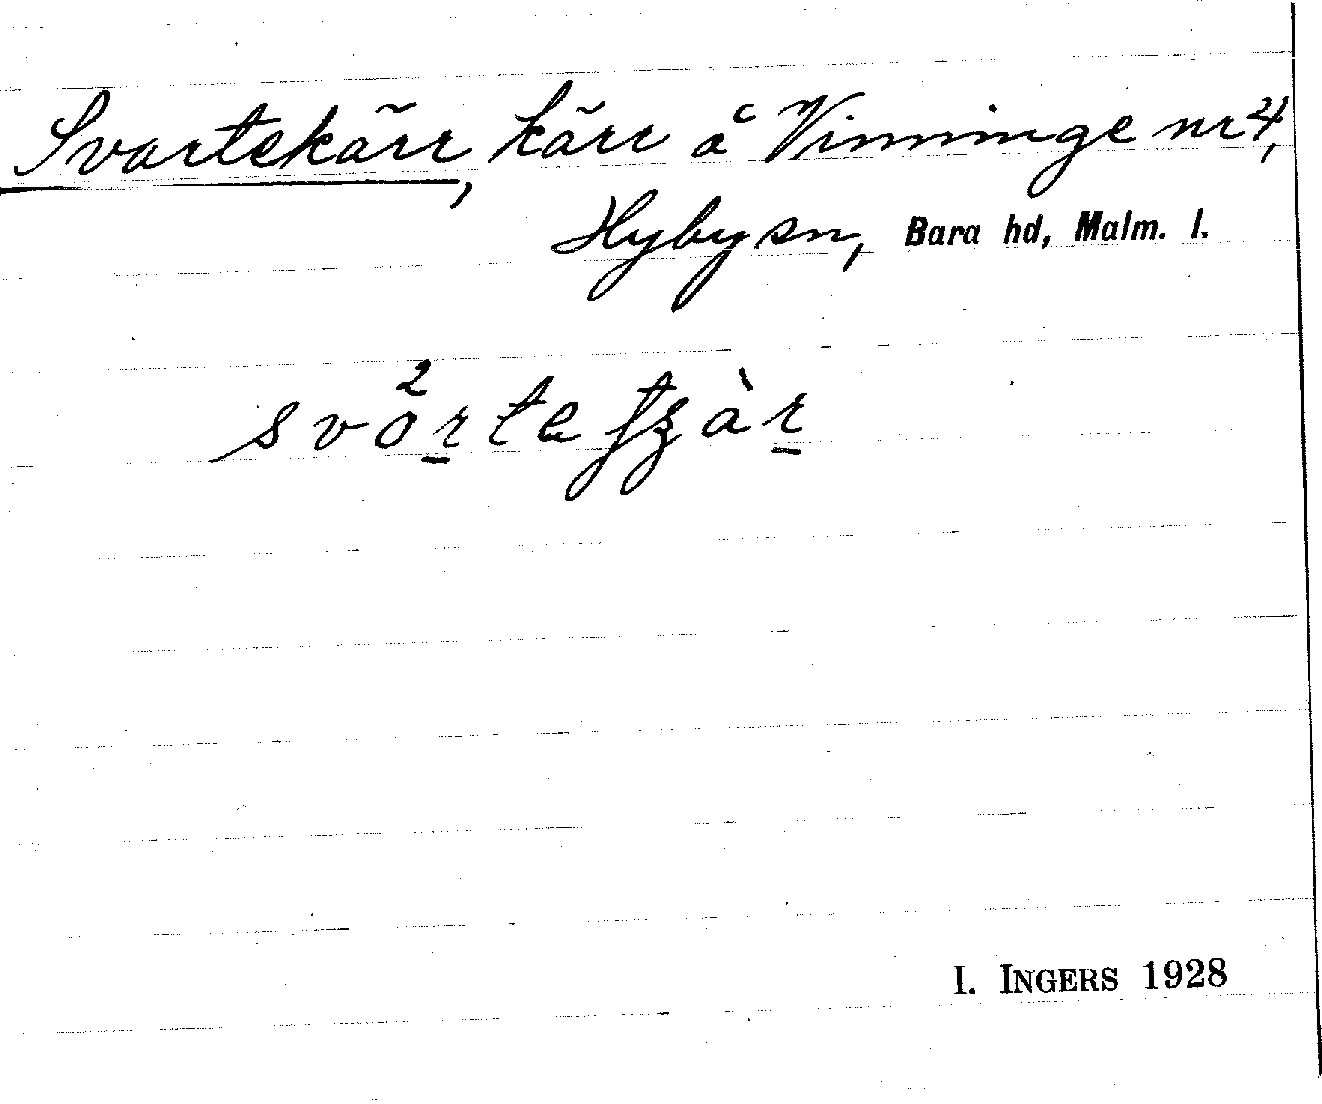 Svartekärr, kärr å Vinninge nr 4,
Hyby sn, Bara hd, Malm. l.
svo²rtetʒàr
I. INGERS 1928